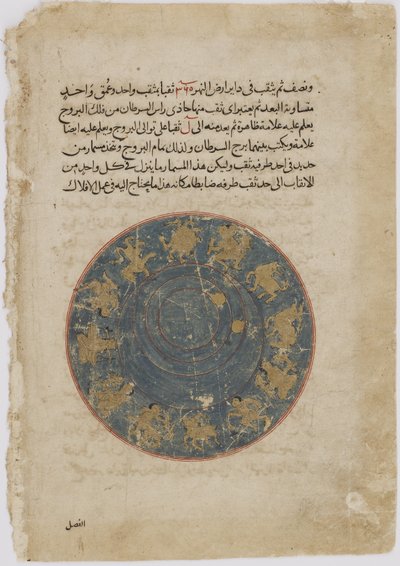 ونصف ثم يثقب في دايرارض النهر ٣٦٥ ثقبا بثقب واحد وعمق واحد
متساوية البعد ثم يعتبر اى ثقب منها حاذى راس السرطان من فلك البروج
يعلم عليه علامة ظاهرة ثم يعد منه الى ل ثقبا على توالى البروج ويعلم عليه ايضا
علامة ويكتب بينهما برج السرطان وكذلك تمام البروج ويتخذ مسمار من
حديد في احد طرفيه ثقب وليكن هذا المسمار ما ينزل في كل واحد من
الاثقاب الى حد ثقب طرفه ضابطا مكانه هذا ما يحتاج اليه في عمل الافلاك
الفصل